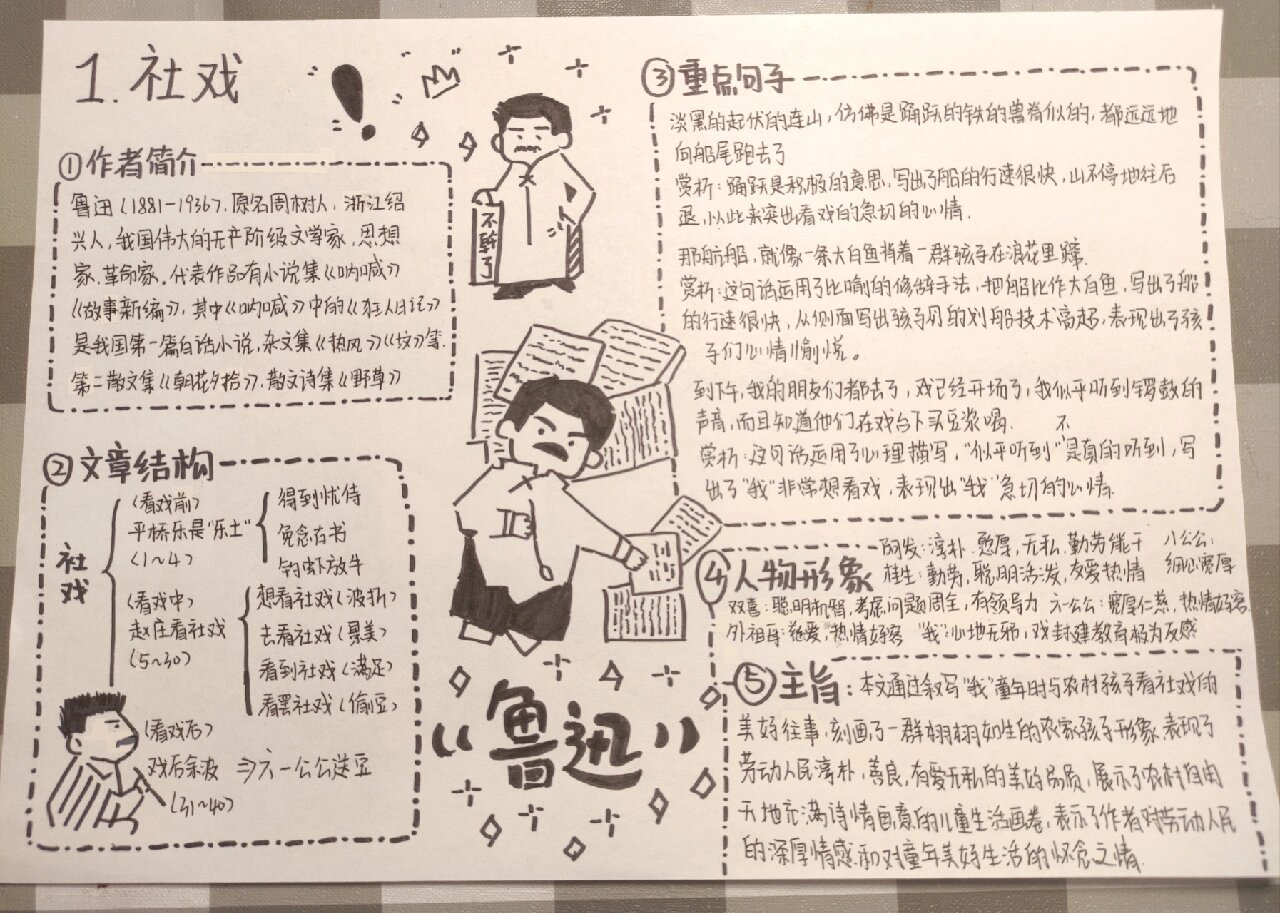 1.社戏
①作者简介
鲁迅（1881-1936），原名周树人，浙江绍
兴人，我国伟大的无产阶级文学家，思想
家、革命家。代表作品有小说集《呐喊》
《故事新编》，其中《呐喊》中的《狂人日记》
是我国第一篇白话小说，杂文集《热风》《坟》等.
第二散文集《朝花夕拾》，散文诗集《野草》
②文章结构
社戏
（看戏前）
平桥乐是“乐土”
（1~4）
得到优待
免念古书
钓虾放牛
（看戏中）
赵庄看社戏
（5~30）
想看社戏（波折）
去看社戏（景美）
看到社戏（满足）
看罢社戏（偷豆）
（看戏后）
戏后余波 ⇒六一公公送豆
（31~40）
不转了
“鲁迅”
③重点句子
淡黑的起伏的连山，仿佛是踊跃的铁的兽脊似的，都远远地
向船尾跑去了
赏析：踊跃是积极的意思，写出了船的行速很快，山不停地往后
退，以此来突出看戏的急切的心情.
那航船，就像一条大白鱼背着一群孩子在浪花里蹿.
赏析：这句话运用了比喻的修辞手法，把船比作大白鱼，写出了船
的行速很快，从侧面写出孩子们的划船技术高超，表现出了孩
子们心情愉悦。
到下午，我的朋友们都去了，戏已经开场了，我似乎听到锣鼓的
声音，而且知道他们在戏台下买豆浆喝.
不
赏析：这句话运用了心理描写，“似乎听到”是真的听到，写
出了“我”非常想看戏，表现出“我”急切的心情.
④人物形象
阿发：淳朴、憨厚，无私，勤劳能干 八公公：
桂生：勤劳，聪明活泼，友爱热情 细心宽厚
双喜：聪明机智，考虑问题周全，有领导力 六一公公：宽厚仁慈，热情好客
外祖母：慈爱，热情好客 “我”：心地无邪，对封建教育极为反感
⑤主旨：本文通过叙写“我”童年时与农村孩子看社戏的
美好往事，刻画了一群栩栩如生的农家孩子形象，表现了
劳动人民淳朴，善良，有爱无私的美好品质，展示了农村自由
天地充满诗情画意的儿童生活画卷，表示了作者对劳动人民
的深厚情感和对童年美好生活的怀念之情.